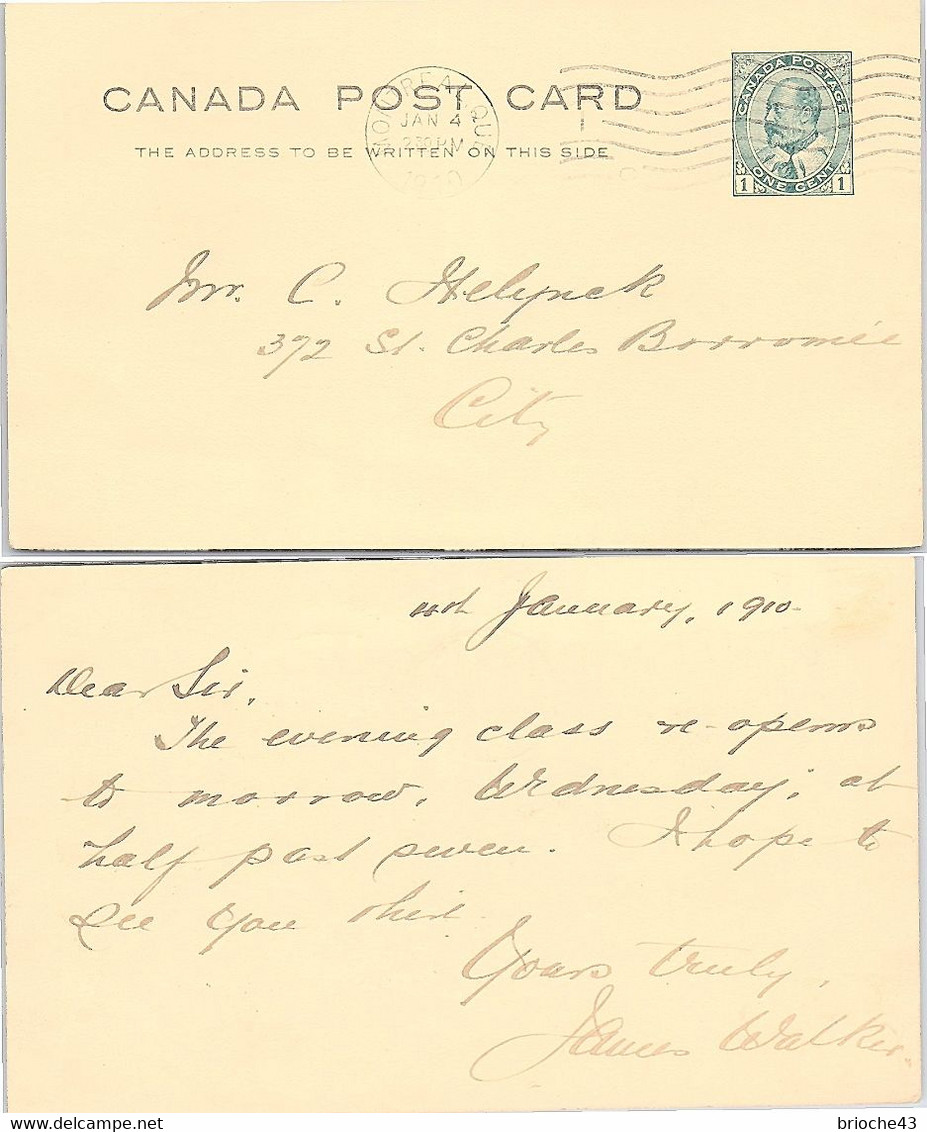 CANADA POST CARD
THE ADDRESS TO BE WRITTEN ON THIS SIDE
MONTREAL, QUE.
JAN 4
2 30 PM
1910
CANADA POSTAGE
ONE CENT
1 1
Mr. C. Helynck
372 St. Charles Borromée
City
4th January, 1910-
Dear Sir,
The evening class re-opens
to morrow, Wednesday, at
half past seven. I hope to
see you
Yours truly,
James Walker.
brioche43